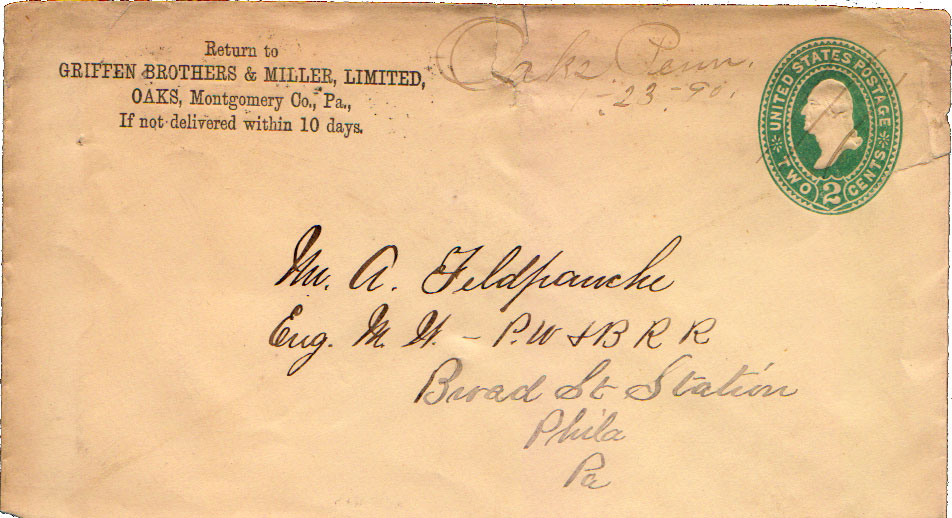 Return to
GRIFFEN BROTHERS & MILLER, LIMITED,
OAKS, Montgomery Co., Pa.,
If not delivered within 10 days.
Oaks Penn.
-23-90.
UNITED STATES POSTAGE
TWO 2 CENTS
Mr. A. Feldpauche
Eng. M. W. - P. W & B R R
Broad St Station
Phila
Pa